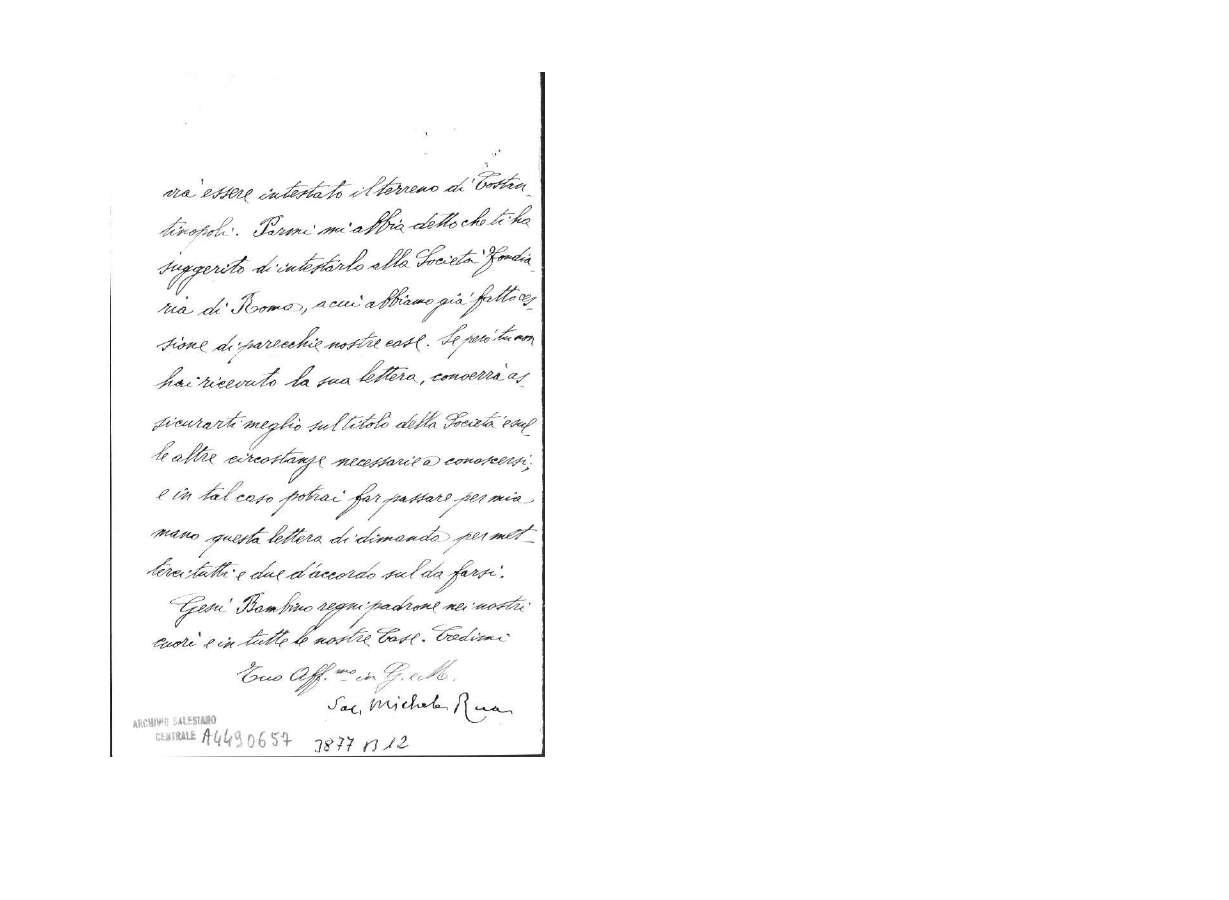 vrà essere intestato il terreno di Costan-
tinopoli. Parmi mi abbia detto che ti ha
suggerito di intestarlo alla Società Fondia-
ria di Roma, a cui abbiamo già fatto ces-
sione di parecchie nostre case. Se però tu non
hai ricevuto la sua lettera, converrà as-
sicurarti meglio sul titolo della Società e sul
le altre circostanze necessarie a conoscersi;
e in tal caso potrai far passare per mia
mano questa lettera di dimanda per met-
terci tutti e due d'accordo sul da farsi.
Gesù Bambino regni padrone nei nostri
cuori e in tutte le nostre Case. Credimi
Tuo Aff.mo in G. e M.
Sac. Michele Rua
ARCHIVIO SALESIANO
CENTRALE A4490657 3877 B 12